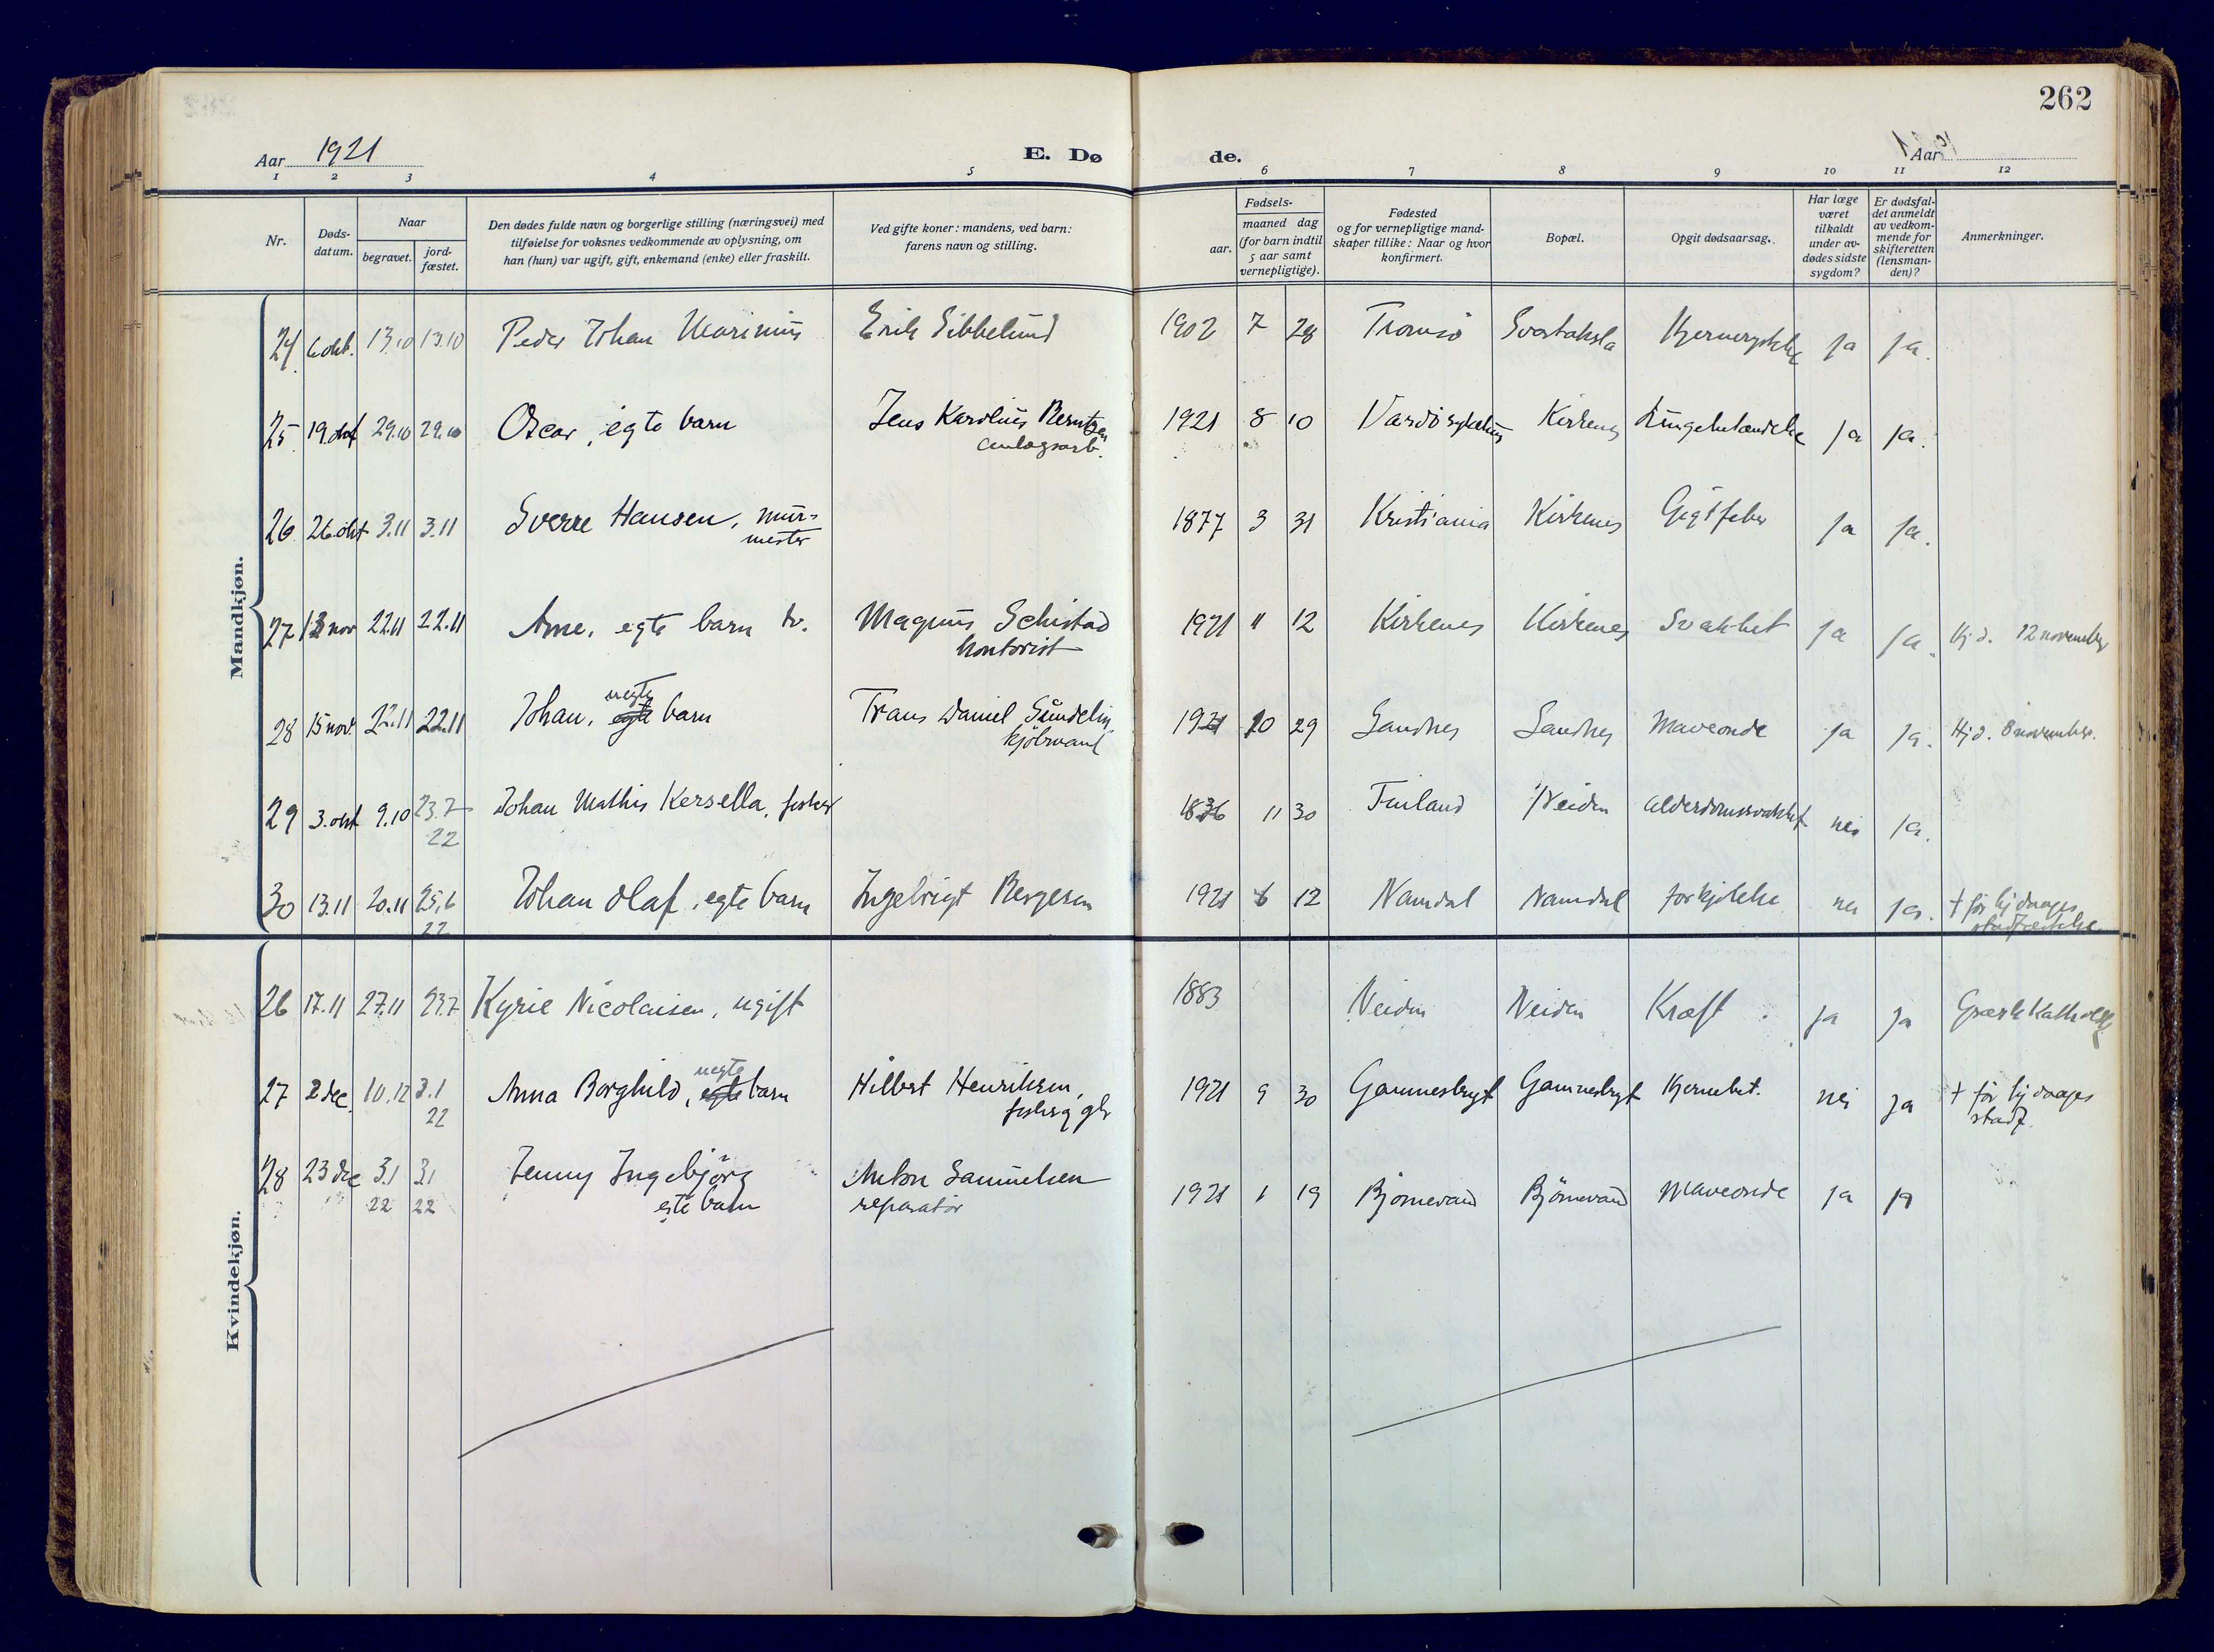 262
Aar 1921
E. Dø
de.
Aar 1921
1 2 3 4 5 6 7 8 9 10 11 12
Nr.
Døds-
datum.
Naar
begravet.
jord-
fæstet.
Den dødes fulde navn og borgerlige stilling (næringsvei) med
tilføielse for voksnes vedkommende av oplysning, om
han (hun) var ugift, gift, enkemand (enke) eller fraskilt.
Ved gifte koner: mandens, ved barn:
farens navn og stilling.
Fødsels-
aar.
maaned dag
(for barn indtil
5 aar samt
vernepligtige).
Fødested
og for vernepligtige mand-
skaper tillike: Naar og hvor
konfirmert.
Bopæl.
Opgit dødsaarsag.
Har læge
været
tilkaldt
under av-
dødes sidste
sygdom?
Er dødsfal-
det anmeldt
av vedkom-
mende for
skifteretten
(lensman-
den)?
Anmerkninger.
Mandkjøn.
24 6 okt. 13.10 13.10 Peder Johan Marinius Erik Sibbelund 1902 7 28 Tromsö Svartaksla ja ja.
25 19. okt 29.10 29.10 Oscar, egte barn Jens Karolius Berntzen 1921 8 10 Vardö sykehus Kirkenes Lungebetændelse ja ja.
anlægsarb.
26 26. okt 3.11 3.11 Sverre Hansen, mur- 1877 3 31 Kristiania Kirkenes Gigtfeber ja ja.
mester
27 12 nov 22.11 22.11 Arne, egte barn tv. Magnus Schistad 1921 11 12 Kirkenes Kirkenes Svakhet ja ja. Hj.d. 12 november
kontorist
uegte
28 15 nov. 22.11 22.11 Johan, egte barn Frans Daniel Sundelin 1921 10 29 Sandnes Sandnes Maveonde ja ja. Hj.d. 8 november.
29 3. okt 9.10 23.7 Johan Mathis Kersella, fisker 1836 11 30 Finland Neiden alderdomssvakhet nei ja.
22
30 13.11 20.11 25.6 Johan Olaf, egte barn Ingebrigt Bergesen 1921 6 12 Namdal Namdal forkjölelse nei ja. † för hj.daapes
22 stadfæstelse.
Kvindekjøn.
26 17.11 27.11 23.7 Kyrie Nicolaisen, ugift 1883 Neiden Neiden Kræft. ja ja Græsk Katholsk
uegte
27 2 dec. 10.12 3.1 Anna Borghild, egte barn Hilbert Henriksen, 1921 9 30 Gammesbygt Gammesbygt nei ja † för hj daapes
22 stadf.
28 23 dec 3.1 3.1 Jenny Ingebjörg Anton Samuelsen 1921 1 19 Björnevand Björnevand Maveonde ja ja
22 22 egte barn reparatör